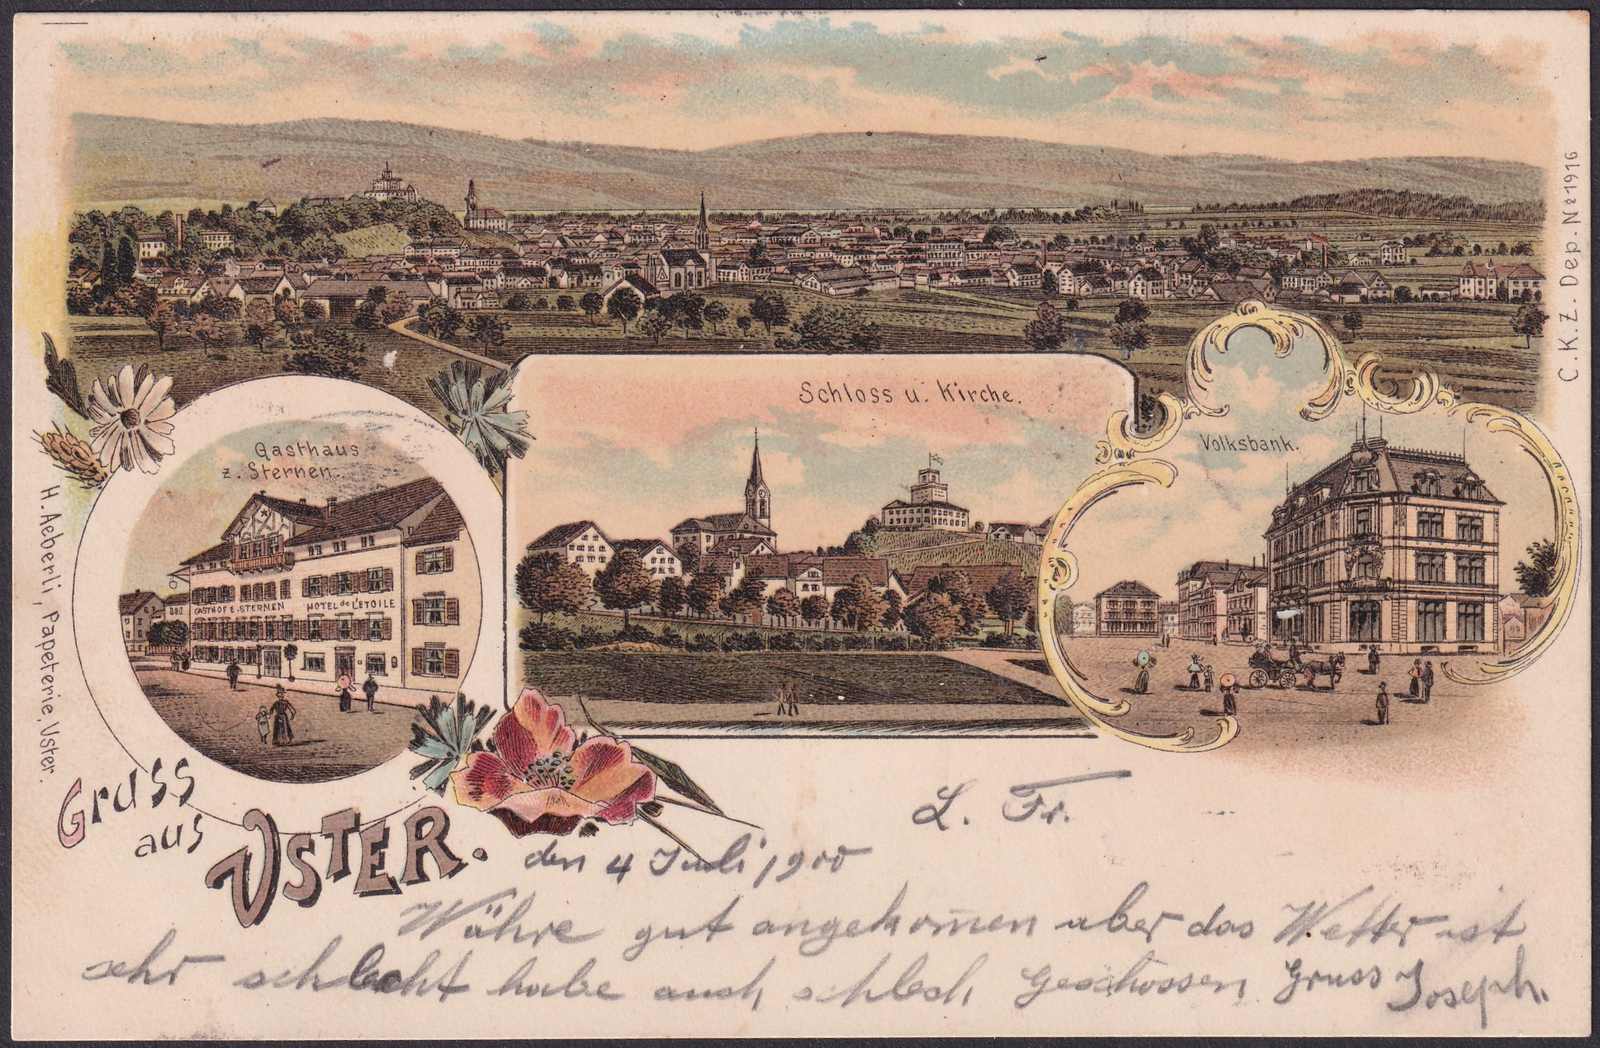 C.K.Z. Dep. No 1916
Schloss u. Kirche.
Volksbank.
Gasthaus
z. Sternen.
GASTHOF Z. STERNEN HOTEL de L'ETOILE
H. Aeberli, Papeterie, Uster.
Gruss
aus
USTER.
L. Fr.
den 4 Juli 1900
Währe gut angekom̄en aber das Wetter ist
sehr schlecht habe auch schlech Geschossen Gruss Joseph.